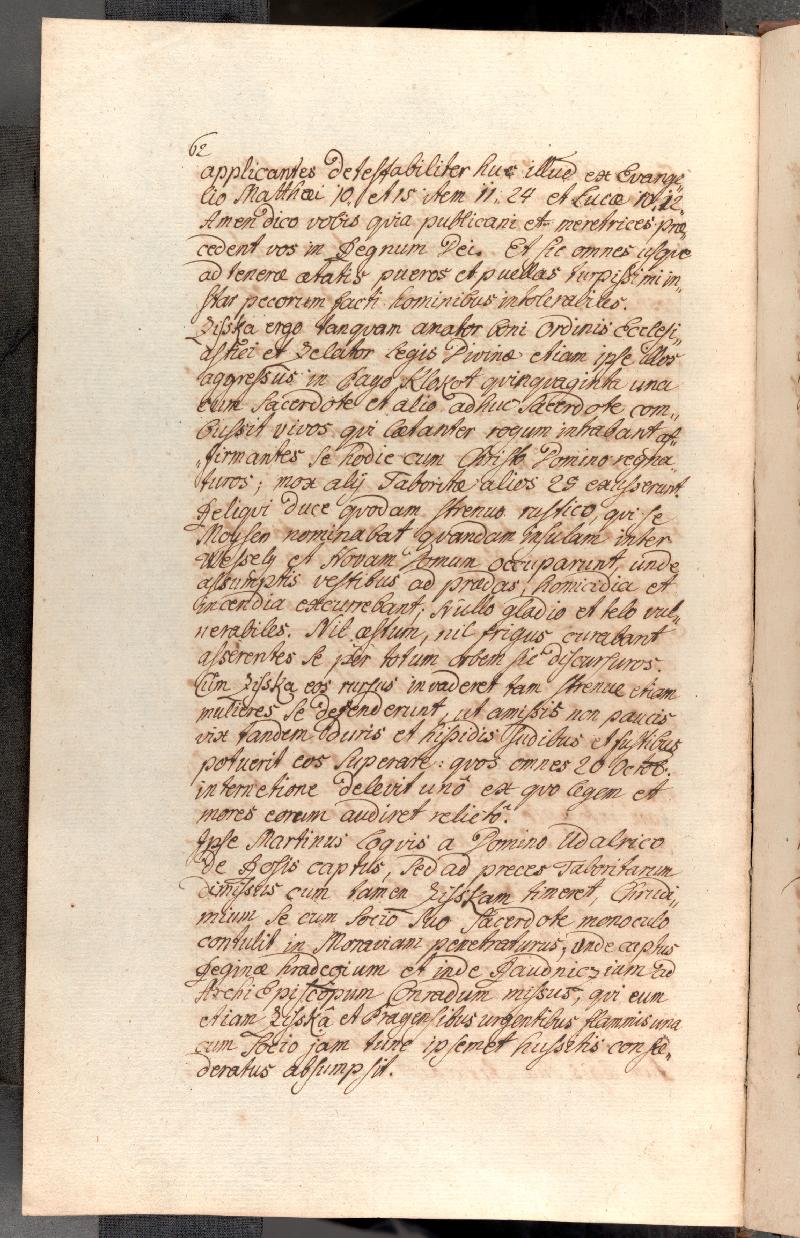 62
applicantes detestabiliter huc illud ex Evange„
lio Matthæi 10. et 15 item 11. 24 et Lucæ 10. 12.
Amen dico vobis quia publicani et meretrices præ„
cedent vos in Regnum Dei. Et sic omnes usque
ad teneræ ætatis pueros et puellas turpissimi in„
star pecorum facti hominibus intolerabiles.
Zisska ergo tanquam amator boni Ordinis Ecclesi„
astici et Zelator legis Divinæ etiam ipse illos
aggressus in Pago Klokot quinquaginta una
cum Sacerdote et alio adhuc Sacerdote com„
bussit vivos qui lætanter rogum intrabant af„
„firmantes se hodie cum Christo Domino regna„
turos; mox alij Taboritæ alios 25 exusserunt
Reliqui duce quodam strenuo rustico, qui se
Moysen nominabat quandam insulam inter
Wessely et Novam Domum occuparunt, unde
assumptis vestibus ad prædas, homicidia et
incendia excurrebant; Nullo gladio et telo vul„
nerabiles. Nil æstum, nil frigus curabant
asserentes se per totum orbem sic discursuros.
Cum Zisska eos rursus invaderet tam strenue etiam
mulieres se defenderunt, ut amissis non paucis
vix tandem duris et hispidis sudibus et fustibus
potuerit eos superare: quos omnes 20 Octob.
internetione delevit unô ex quo legem et
mores eorum audiret relictô.
Ipse Martinus Loquis a Domino Udalrico
de Rosis captus, sed ad preces Taboritarum
dimissus cum tamen Zisskam timeret, Chrudi„
mium se cum socio suo Sacerdote monoculo
contulit in Moraviam penetraturus, unde captus
Reginæ hradecium et inde Raudnicziam ad
Archi Episcopum Conradum missus, qui eum
etiam Zisskâ et Pragensibus urgentibus flammis una
cum socio jam tunc ipsemet hussitis confæ„
deratus absumpsit.